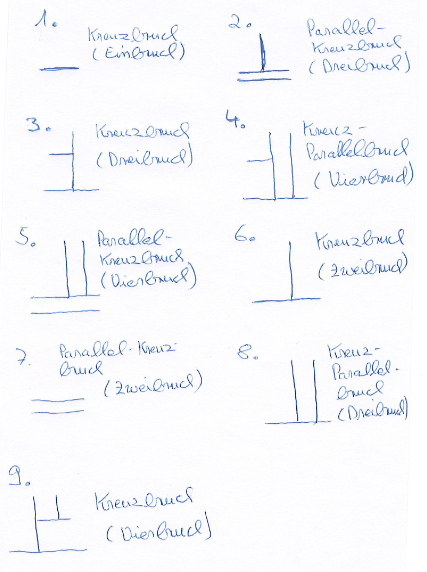 1. Kreuzbruch
(Einbruch)
2. Parallel-
Kreuzbruch
(Dreibruch)
3. Kreuzbruch
(Dreibruch)
4. Kreuz-
Parallelbruch
(Vierbruch)
5. Parallel-
Kreuzbruch
(Vierbruch)
6. Kreuzbruch
(Zweibruch)
7. Parallel-Kreuz-
bruch
(Zweibruch)
8. Kreuz-
Parallel-
bruch
(Dreibruch)
9. Kreuzbruch
(Vierbruch)